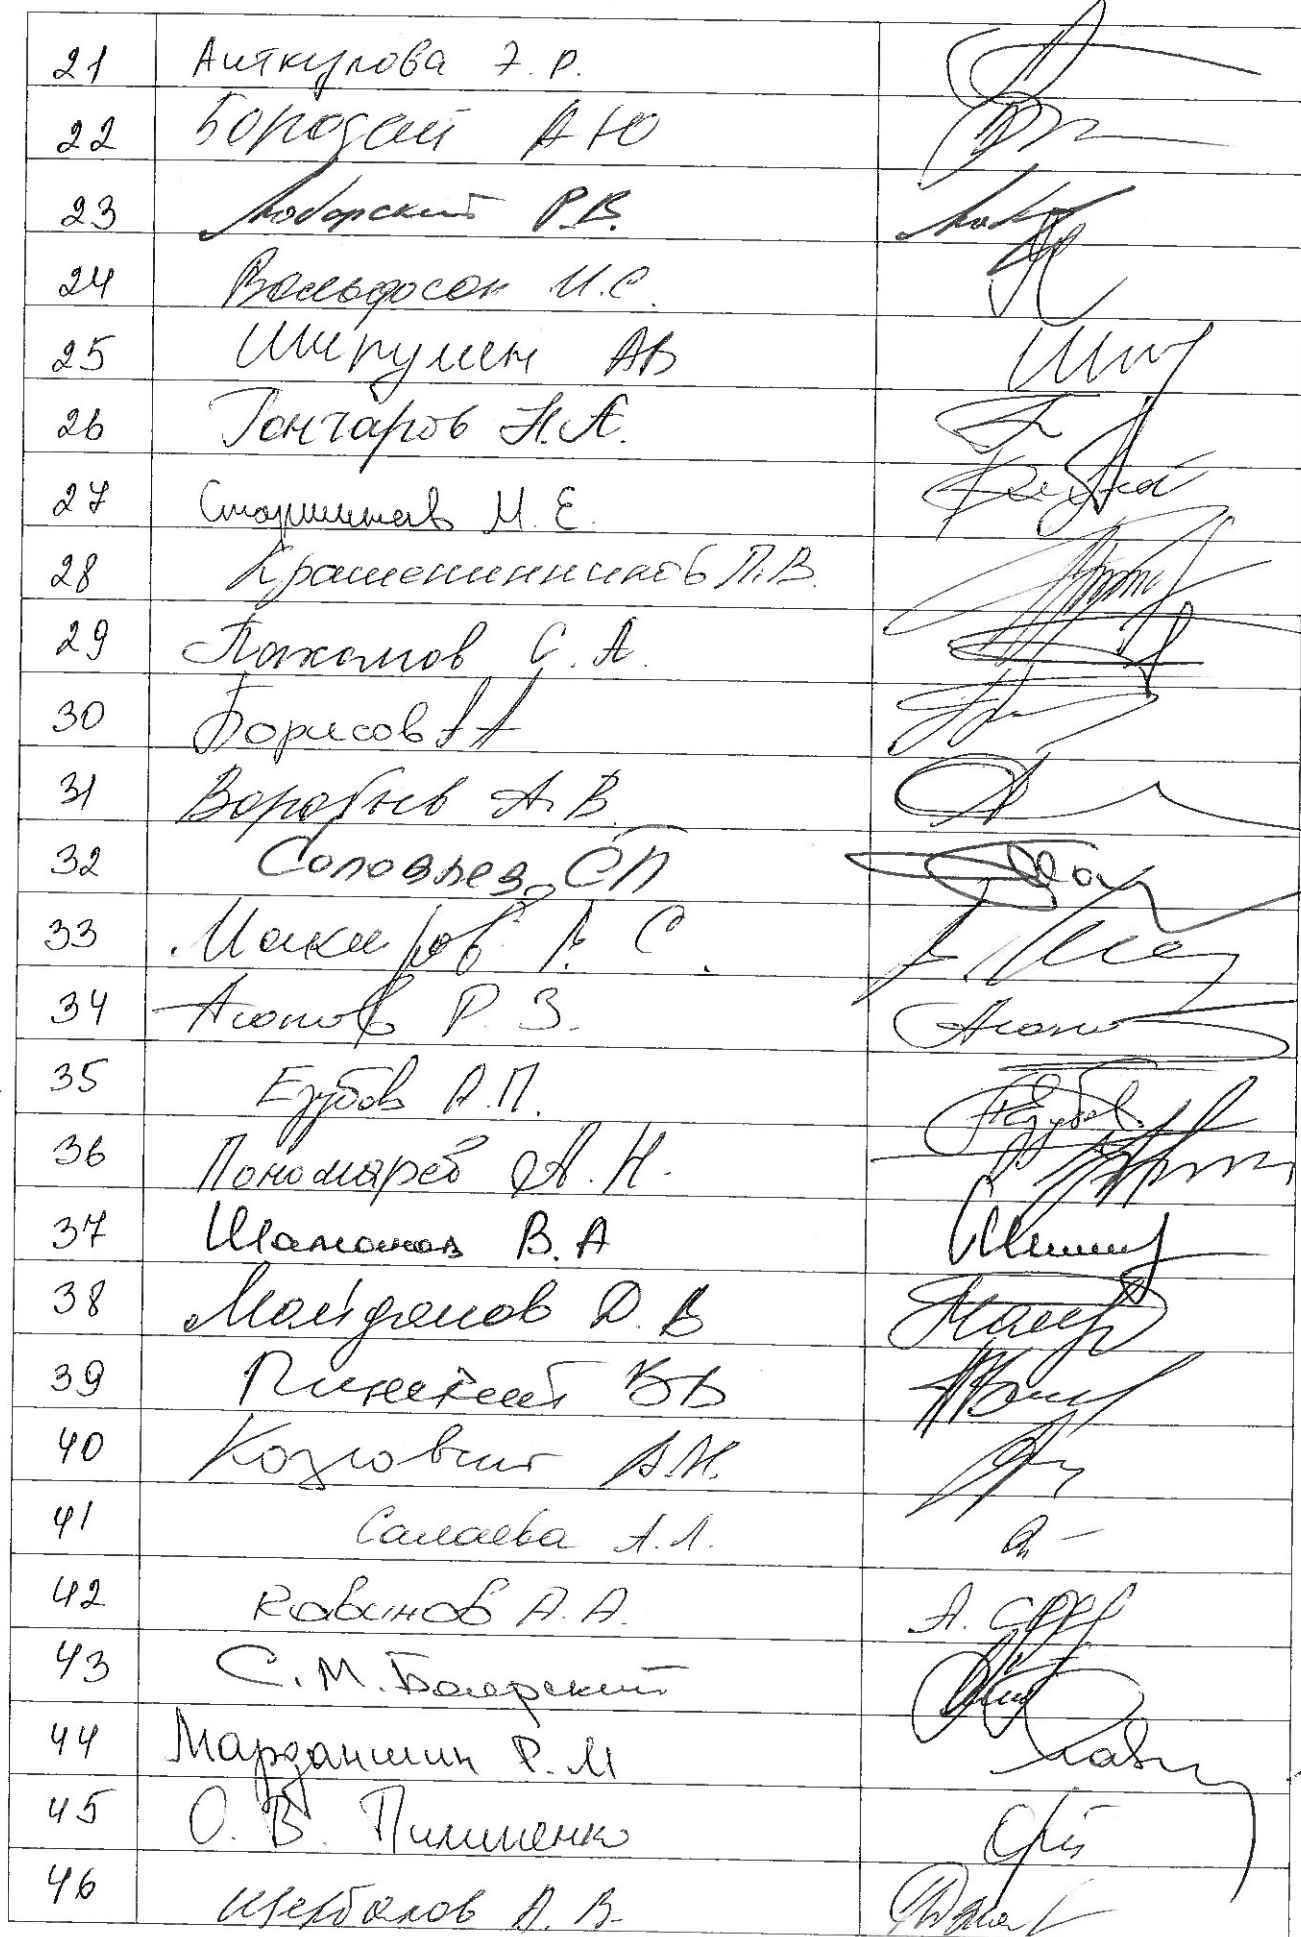 21 Аиткулова Э. Р.
22 Бородай А Ю
23 Любарский Р.В.
24 И.С.
25 Шипулин АВ
26 Гончаров Н.А.
27 Старшинов М. Е.
28 Крашенинников П.В.
29 Пахомов С. А.
30 Борисов А А
31 Воробьев А. В.
32 Соловьев СП
33 С.
34 Агапов Р. З.
35 Езубов А.П.
36 Пономарёв А. Н.
37 Шаманов В. А
38 Майданов Д. В
39 Пинский ВВ
40 А.Н.
41 Салаева А.Л.
42 А. А.
43 С. М. Боярский
44 Марданшин Р. М
45 О. В. Пилипенко
46 Щербаков А. В.